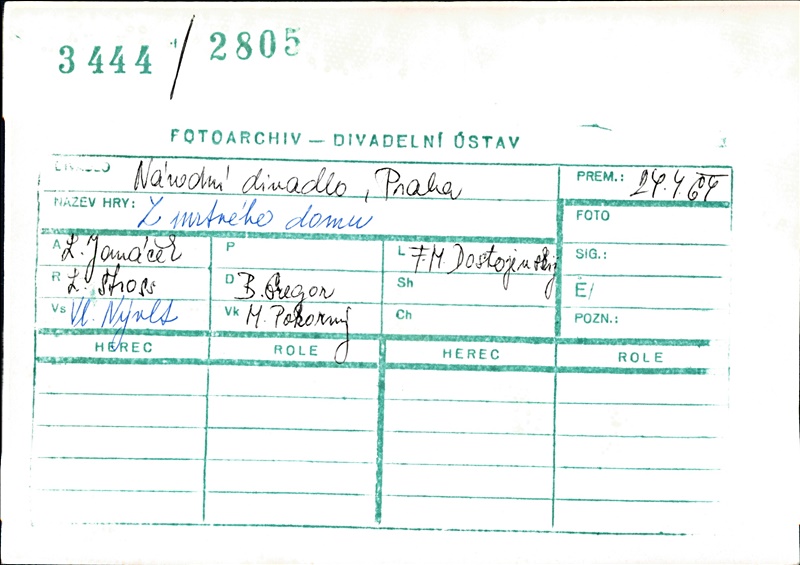 3444 / 2805
FOTOARCHIV — DIVADELNÍ ÚSTAV
DIVADLO Národní divadlo, Praha
PREM.: 24.4.64
NÁZEV HRY: Z mrtvého domu
FOTO
A L. Janáček
P
L F.M. Dostojevskij
SIG.:
R L. Štros
D B. Gregor
Sh
Ë/
Vs Vl. Nývlt
Vk M. Pokorný
Ch
POZN.:
HEREC ROLE HEREC ROLE